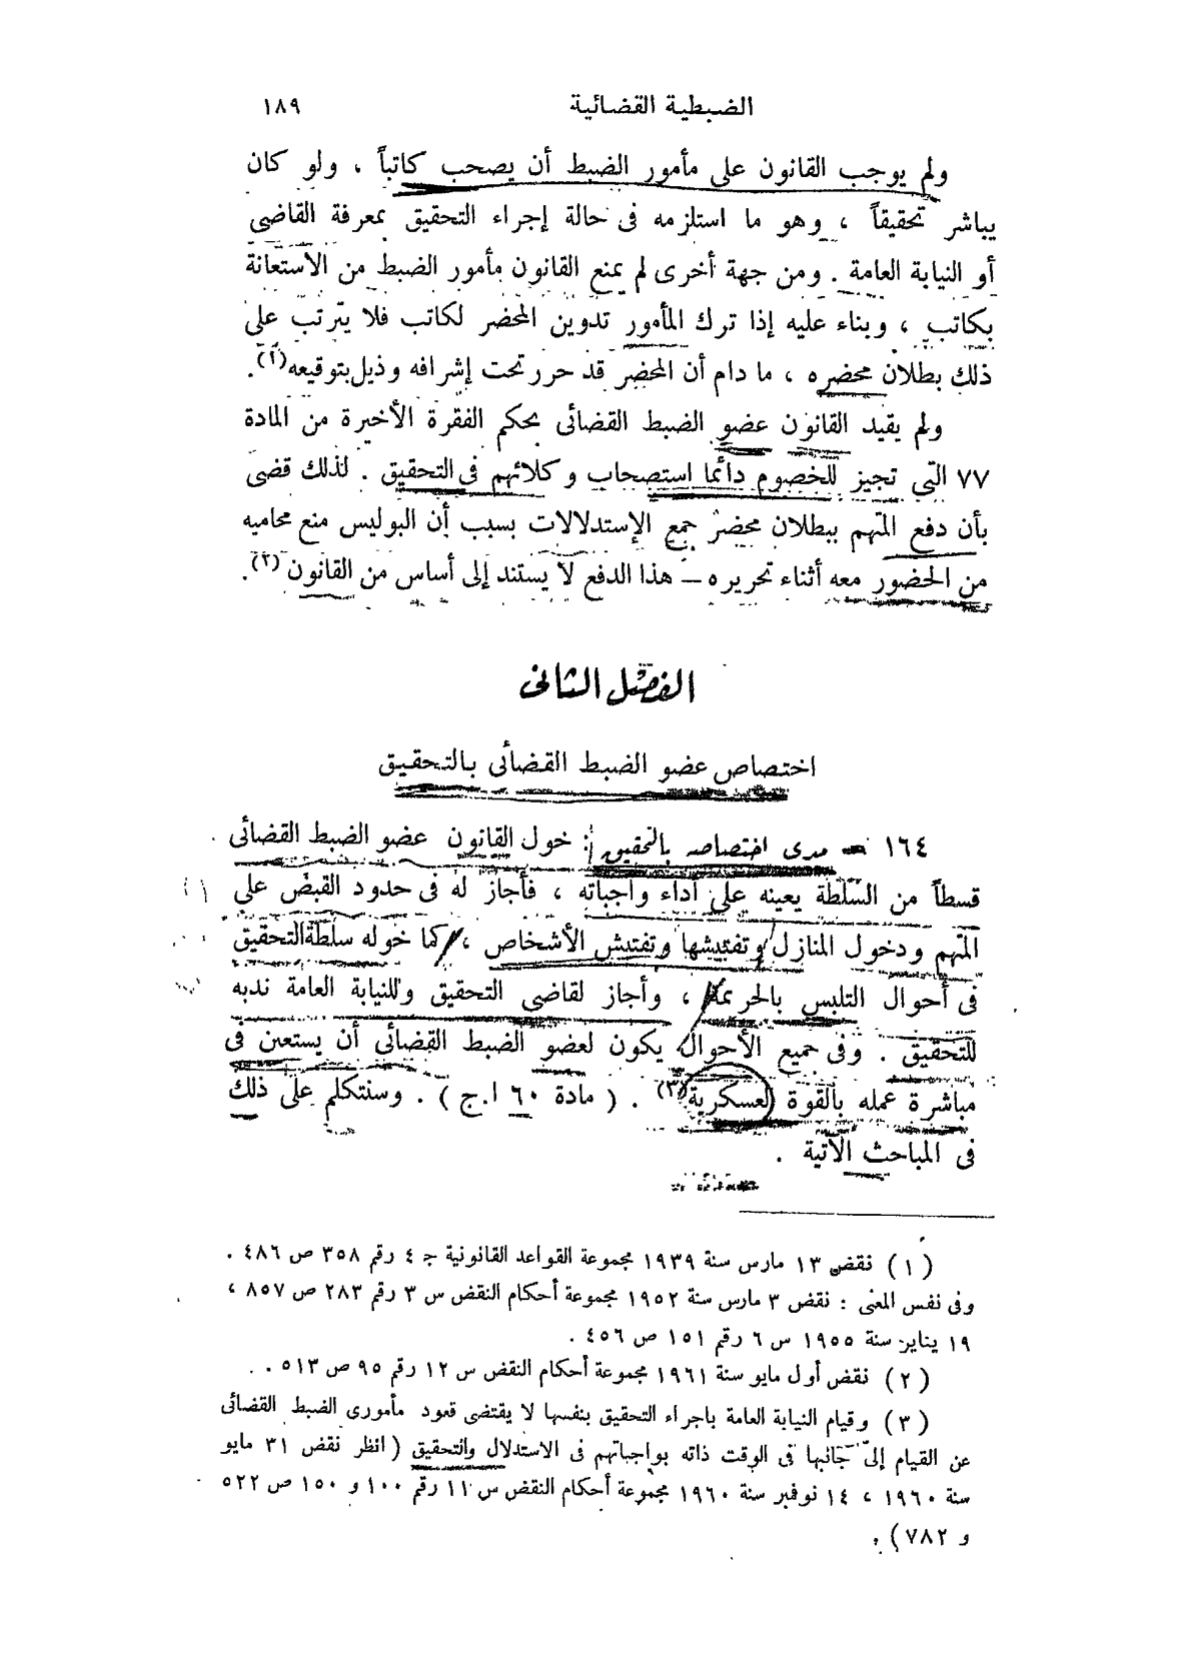 الضبطية القضائية ١٨٩
ولم يوجب القانون على مأمور الضبط أن يصحب كاتباً ، ولو كان
يباشر تحقيقاً ، وهو ما استلزمه فى حالة إجراء التحقيق بمعرفة القاضى
أو النيابة العامة . ومن جهة أخرى لم يمنع القانون مأمور الضبط من الاستعانة
بكاتب ، وبناء عليه إذا ترك المأمور تدوين المحضر لكاتب فلا يترتب على
ذلك بطلان محضره ، ما دام أن المحضر قد حرر تحت إشرافه وذيل بتوقيعه (١) .
ولم يقيد القانون عضو الضبط القضائى بحكم الفقرة الأخيرة من المادة
٧٧ التى تجيز للخصوم دائما استصحاب وكلائهم فى التحقيق . لذلك قضى
بأن دفع المتهم ببطلان محضر جمع الإستدلالات بسبب أن البوليس منع محاميه
من الحضور معه أثناء تحريره – هذا الدفع لا يستند إلى أساس من القانون (٢) .
الفصل الثانى
اختصاص عضو الضبط القضائى بالتحقيق
١٦٤ – مدى اختصاصه بالتحقيق : خول القانون عضو الضبط القضائى
قسطاً من السلطة يعينه على أداء واجباته ، فأجاز له فى حدود القبض على
المتهم ودخول المنازل وتفتيشها وتفتيش الأشخاص ، كما خوله سلطة التحقيق
فى أحوال التلبس بالجريمة ، وأجاز لقاضى التحقيق وللنيابة العامة ندبه
للتحقيق . وفى جميع الأحوال يكون لعضو الضبط القضائى أن يستعين فى
مباشرة عمله بالقوة العسكرية (٣) . ( مادة ٦٠ ا.ج ) . وسنتكلم على ذلك
فى المباحث الآتية .
( ١ ) نقض ١٣ مارس سنة ١٩٣٩ مجموعة القواعد القانونية ج ٤ رقم ٣٥٨ ص ٤٨٦ .
وفى نفس المعنى : نقض ٣ مارس سنة ١٩٥٢ مجموعة أحكام النقض س ٣ رقم ٢٨٣ ص ٨٥٧ ،
١٩ يناير سنة ١٩٥٥ س ٦ رقم ١٥١ ص ٤٥٦ .
( ٢ ) نقض أول مايو سنة ١٩٦١ مجموعة أحكام النقض س ١٢ رقم ٩٥ ص ٥١٣ .
( ٣ ) وقيام النيابة العامة باجراء التحقيق بنفسها لا يقتضى قعود مأمورى الضبط القضائى
عن القيام إلى جانبها فى الوقت ذاته بواجباتهم فى الاستدلال والتحقيق ( انظر نقض ٣١ مايو
سنة ١٩٦٠ ، ١٤ نوفمبر سنة ١٩٦٠ مجموعة أحكام النقض س ١١ رقم ١٠٠ و ١٥٠ ص ٥٢٢
و ٧٨٢ ) .